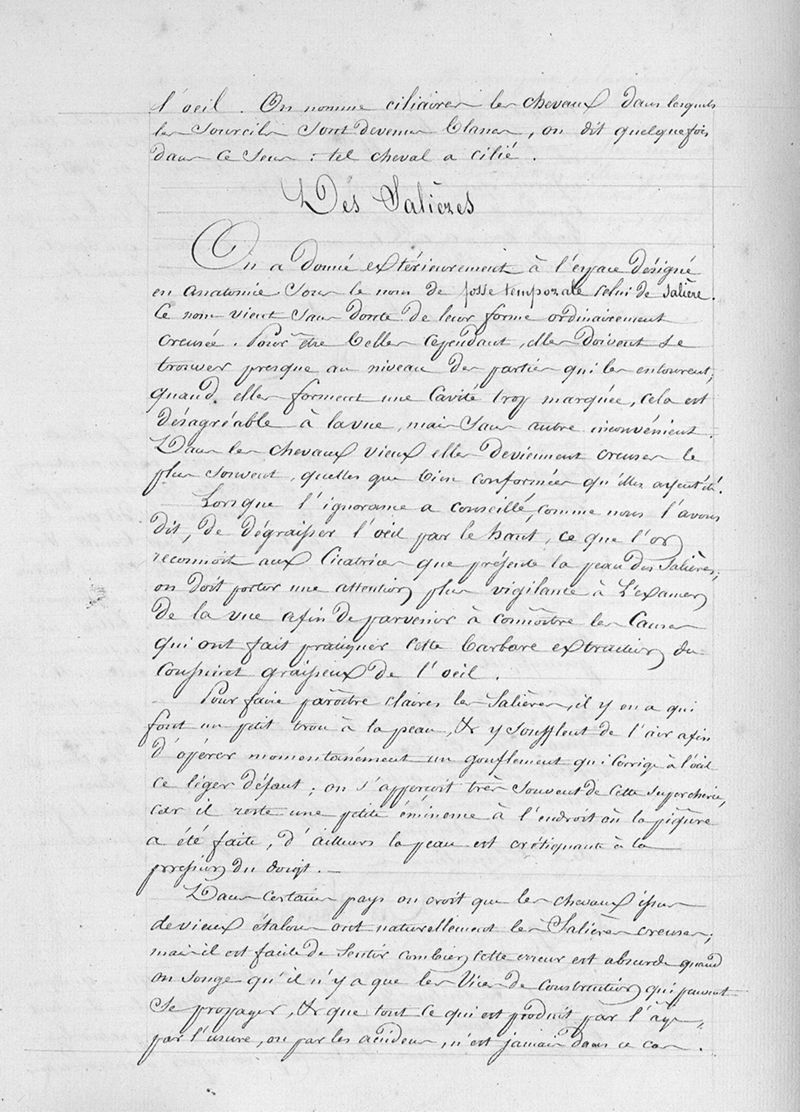 l'oeil. On nomme ciliaires les chevaux dans lesquels
les sourcils sont devenus blancs, on dit quelquefois
dans ce sens: tel cheval a cilié.
Des Salières
On a donné extérieurement à l'espace désigné
en anatomie sous le nom de fosse temporale celui de salière.
Ce nom vient sans doute de leur forme ordinairement
creusée. Pour être belles cependant, elles doivent se
trouver presque au niveau des parties qui les entourent,
quand elles forment une cavité trop marquée, cela est
désagréable à la vue, mais sans autre inconvénient.
Dans les chevaux vieux elles deviennent creuses le
plus souvent, quelles que bien conformées qu'elles ayent été.
Lorsque l'ignorance a conseillé, comme nous l'avons
dit, de dégraisser l'oeil par le haut, ce que l'on
reconnoit aux cicatrices que présente la peau des salières,
on doit porter une attention plus vigilance à l'examen
de la vue afin de parvenir à connoître les causes
qui ont fait pratiquer cette barbare extraction du
coussinet graisseux de l'oeil.
Pour faire paroître claires les salières, il y en a qui
font un petit trou à la peau, & y soufflent de l'air afin
d'opérer momentanément un gonflement qui corrige à l'oeil
ce léger défaut; on s'apperçoit très souvent de cette supercherie,
car il reste une petite éminence à l'endroit où la piqûre
a été faite, d'ailleurs la peau est crétiquante à la
pression du doigt. —
Dans certains pays on croit que les chevaux issus
de vieux étalons ont naturellement les salières creuses;
mais il est facile de sentir combien cette erreur est absurde quand
on songe qu'il n'y a que les vices de construction qui peuvent
se propager, & que tout ce qui est produit par l'âge,
par l'usure, ou par les accidens, n'est jamais dans ce cas.